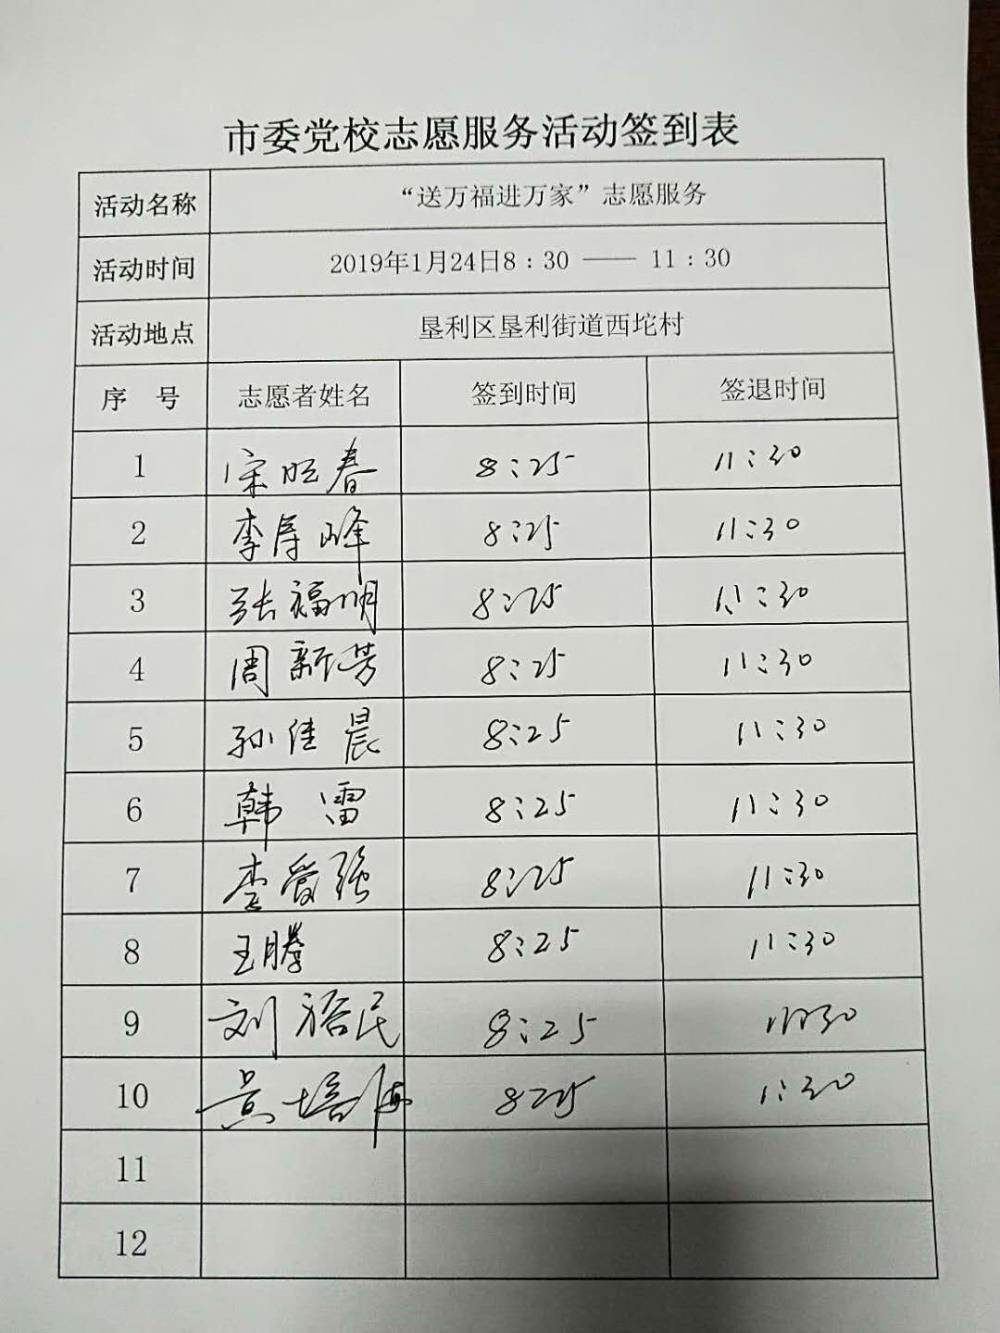 市委党校志愿服务活动签到表
活动名称 “送万福进万家”志愿服务
活动时间 2019年1月24日8：30 —— 11：30
活动地点 垦利区垦利街道西坨村
序 号 志愿者姓名 签到时间 签退时间
1 宋旺春 8:25 11:30
2 李寿峰 8:25 11:30
3 张福明 8:25 11:30
4 周新芳 8:25 11:30
5 孙佳晨 8:25 11:30
6 韩雷 8:25 11:30
7 李爱强 8:25 11:30
8 王腾 8:25 11:30
9 刘裕民 8:25 11:30
10 8:25 11:30
11
12